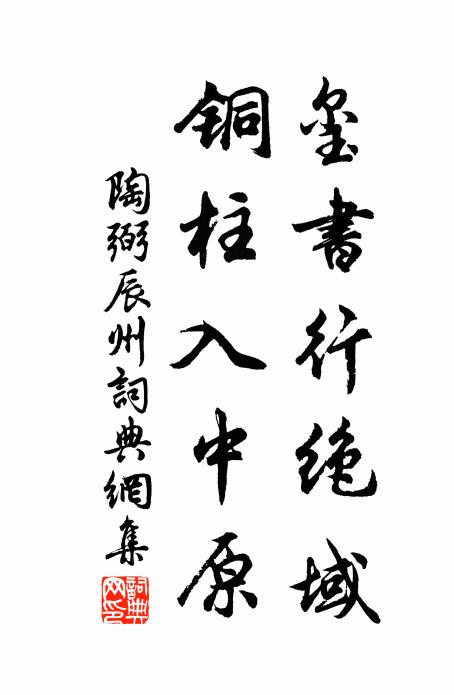 玺書行绝域
铜柱入中原
陶弼辰州詞典網集
詞典网印